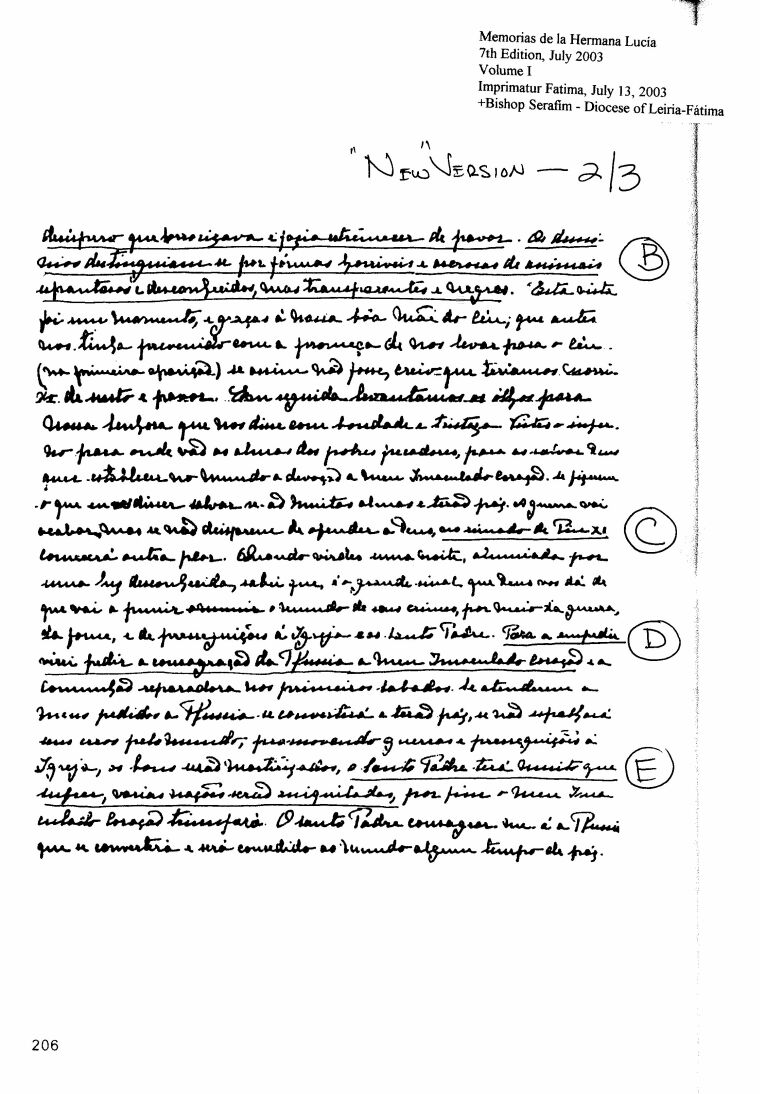 Memorias de la Hermana Lucía
7th Edition, July 2003
Volume I
Imprimatur Fatima, July 13, 2003
+Bishop Serafim - Diocese of Leiria-Fátima
"New" Version — 2/3
que horrorizava e fazia estremecer de pavor. Os demo-
nios distinguiam-se por fórmas horriveis e ascrosas de animais
espantosos e desconhecidos, mas transparentes e negros. Esta vista
B
foi um momento, e graças á nossa bôa Mãi do Céu; que antes
nos tinha prevenido com a promeça de nos levar para o Céu.
(na primeira aparição) se assim não fosse, creio que teriamos morri-
do de susto e pavor. Em seguida levantamos os olhos para
Nossa Senhora que nos disse com bondade e tristeza. Vistes o infer-
no para onde vão as almas dos pobres pecadores, para as salvar Deus
quer establecer no mundo a devoção a meu Imaculado Coração. Se fizerem
o que eu disser salvar-se-ão muitas almas e terão paz. A guerra vai
acabar, mas se não deixarem de ofender a Deus, no reinado de Pio XI
C
comecará outra peor. Quando virdes uma noite, alumiada por
uma luz desconhecida, sabei que, é o grande sinal que Deus vos dá de
que vai a punir o mundo de seus crimes, por meio da guerra,
da fome, e de perseguições á Igreja e ao Santo Padre. Para a empedir
D
virei pedir a consagração da Russia a meu Imaculado Coração e a
Comunhão reparadora nos primeiros sabados. Se atenderem a
meus pedidos a Russia se converterá e terão paz, se não espalhará
seus erros pelo mundo, promovendo guerras e perseguições á
Igreja, os bons serão martirizados, o Santo Padre terá muito que
E
sufrer, varias nações serão aniquiladas, por fim o meu Ima
culado Coração triunfará. O Santo Padre consagrar-me-á a Russia
que se converterá e será consedido ao mundo algum tempo de paz.
206